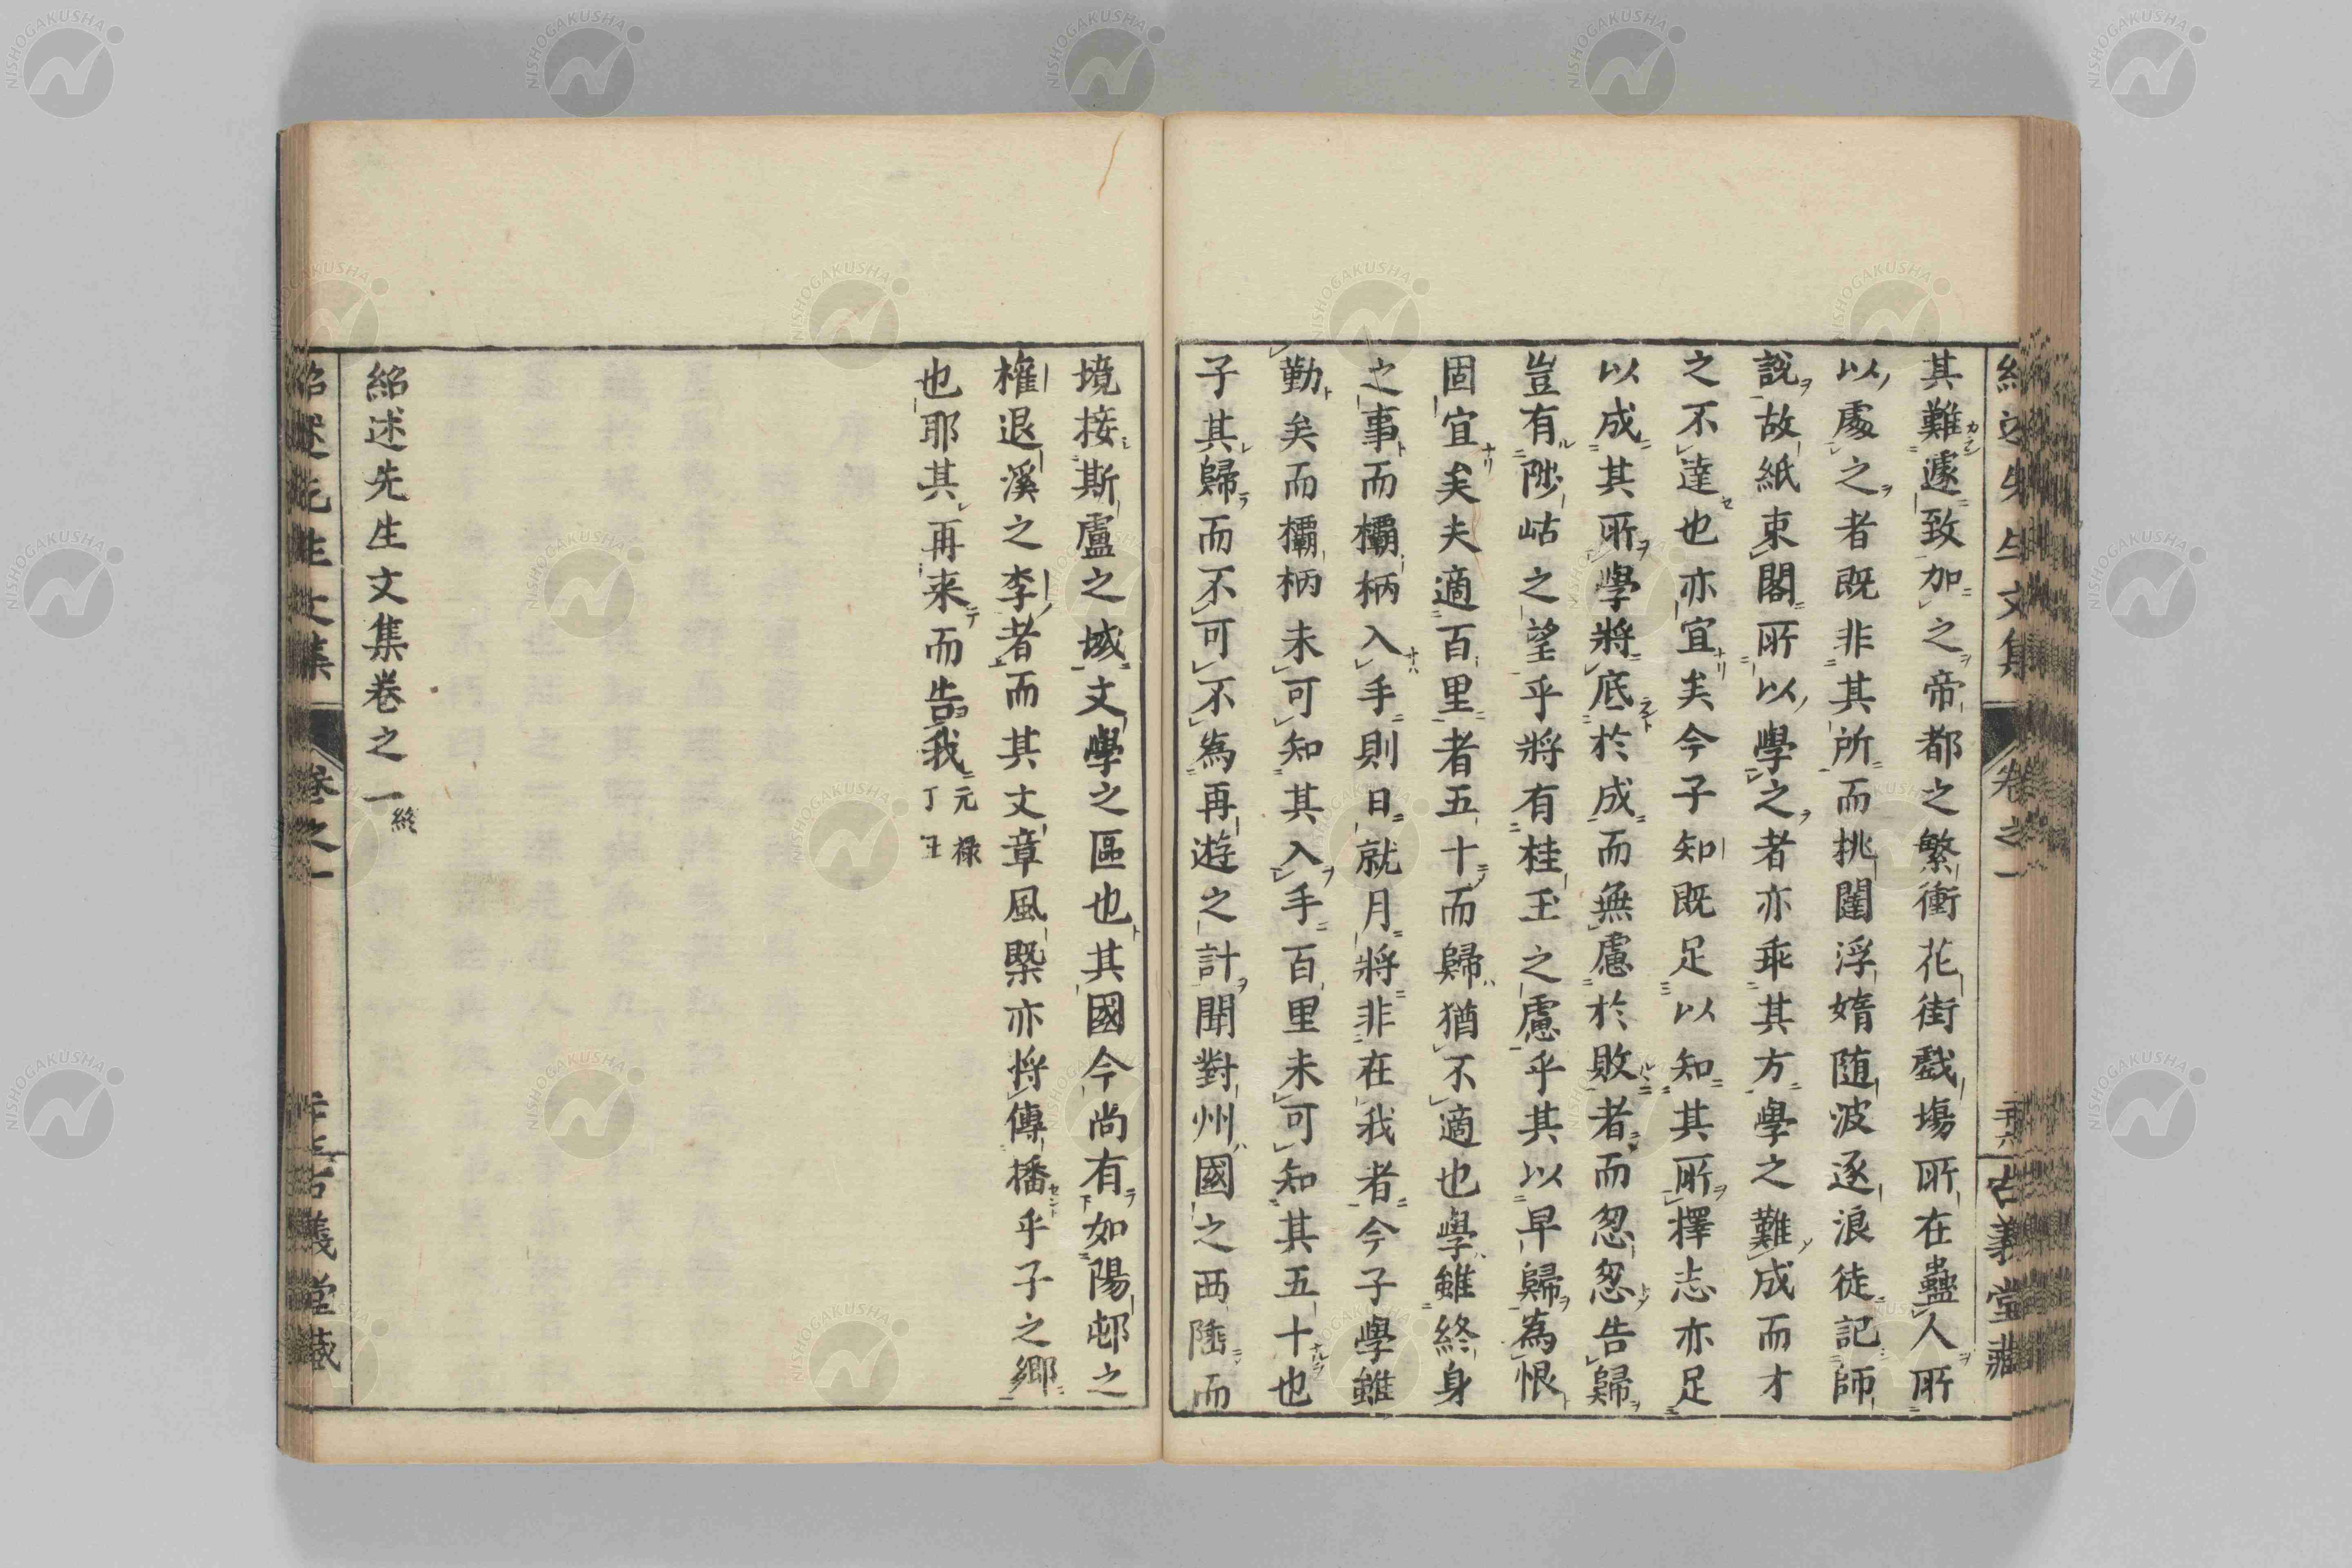 其難遽致加之帝都之繁衝花街戲場所在蠱人所
以處之者既非其所而挑闥浮媠随波逐浪徒記師
說故紙束閣所以學之者亦乖其方學之難成而才
之不達也亦宜矣今子知既足以知其所擇志亦足
以成其所學將底於成而無慮於敗者而忽忽告歸
豈有陟岵之望乎將有桂玉之慮乎其以早歸為恨
固宜矣夫適百里者五十而歸猶不適也學雖終身
之事而欛柄入手則日就月將非在我者今子學雖
勤矣而欛柄未可知其入手百里未可知其五十也
子其歸而不可不為再遊之計聞對州國之西陲而
境接斯盧之域文學之區也其國今尚有如陽邨之
權退溪之李者而其文章風槩亦將傳播乎子之鄉
也耶其再来而告我元禄丁丑
紹述先生文集卷之一終
紹述先生文集 卷之一 古義堂藏
NISHOGAKUSHA